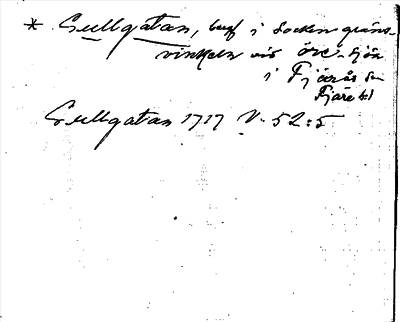 * Gullgatan, berg i Sockengräns-
vinkeln vid Öresjön
i Fjärås sn
Fjäre hd
Gullgatan 1717 V. 52:5